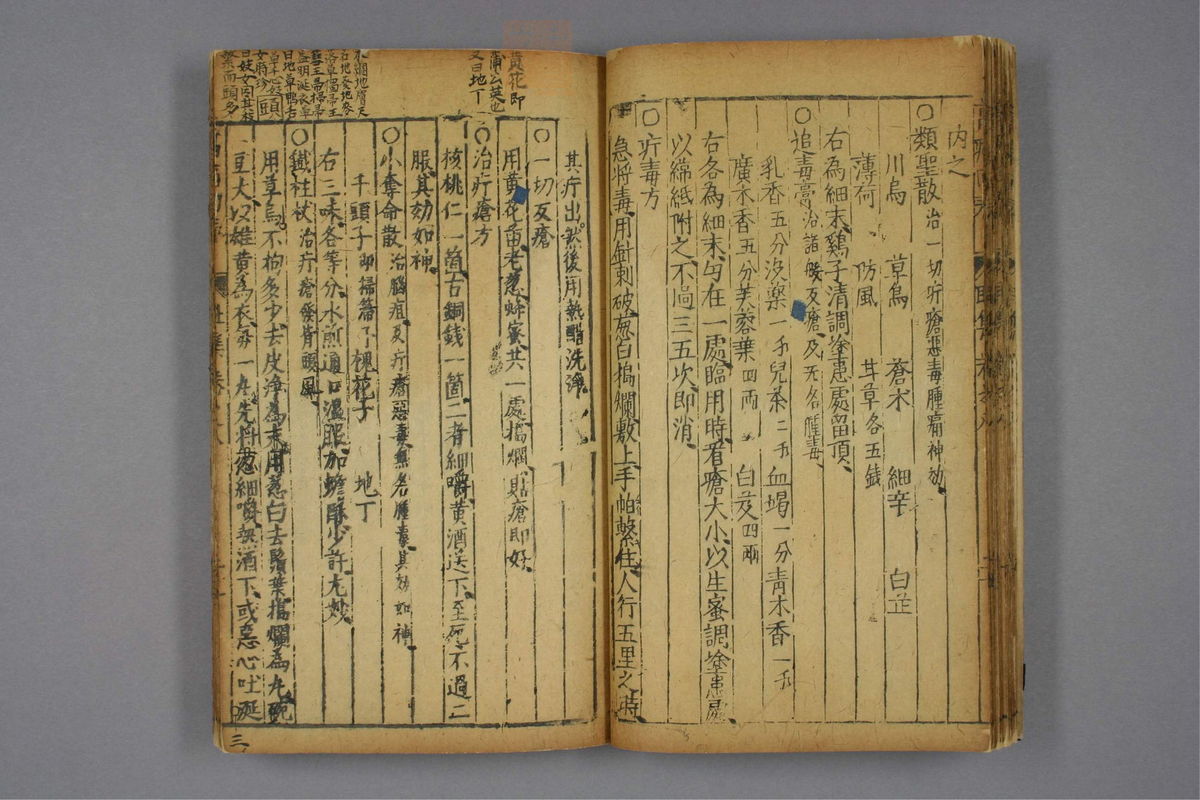 内之
○類聖散治一切疔瘡惡毒腫痛神効
川烏 草烏 蒼朮 細辛 白芷
薄荷 防風 甘草各五錢
右為細末鷄子清調塗患處留頂
○追毒膏治諸般反瘡及无名腫毒
乳香五分沒藥一分兒茶二分血竭一分靑木香一分
廣木香五分芙蓉葉四兩 白芨四兩
右各為細末勻在一處臨用時看瘡大小以生蜜調塗患處
以綿紙附之不過三五次即消
○疔毒方
急將毒用針刺破葱白搗爛敷上手帕繫住人行五里之時
其疔出然後用熱醋洗淨
○一切反瘡
用黃花苗老葱蜂蜜共一處搗爛貼瘡即好
○治疔瘡方
核桃仁一箇古銅錢一箇二者細嚼黃酒送下至死不過二
服其効如神
○小奪命散治腦疽及疔瘡惡毒無名腫毒其効如神
千頭子即掃箒了 槐花子 地丁
右三味各等分水煎通口溫服加蟾酥少許尤妙
○鐵柱杖治疔瘡發背頭風
用草烏不拘多少去皮淨為末用葱白去鬚葉搗爛為丸豌
豆大以雄黃為衣每一丸先將葱細嚼熱酒下或惡心吐涎
黃花即
蒲公英也
又曰地丁
三